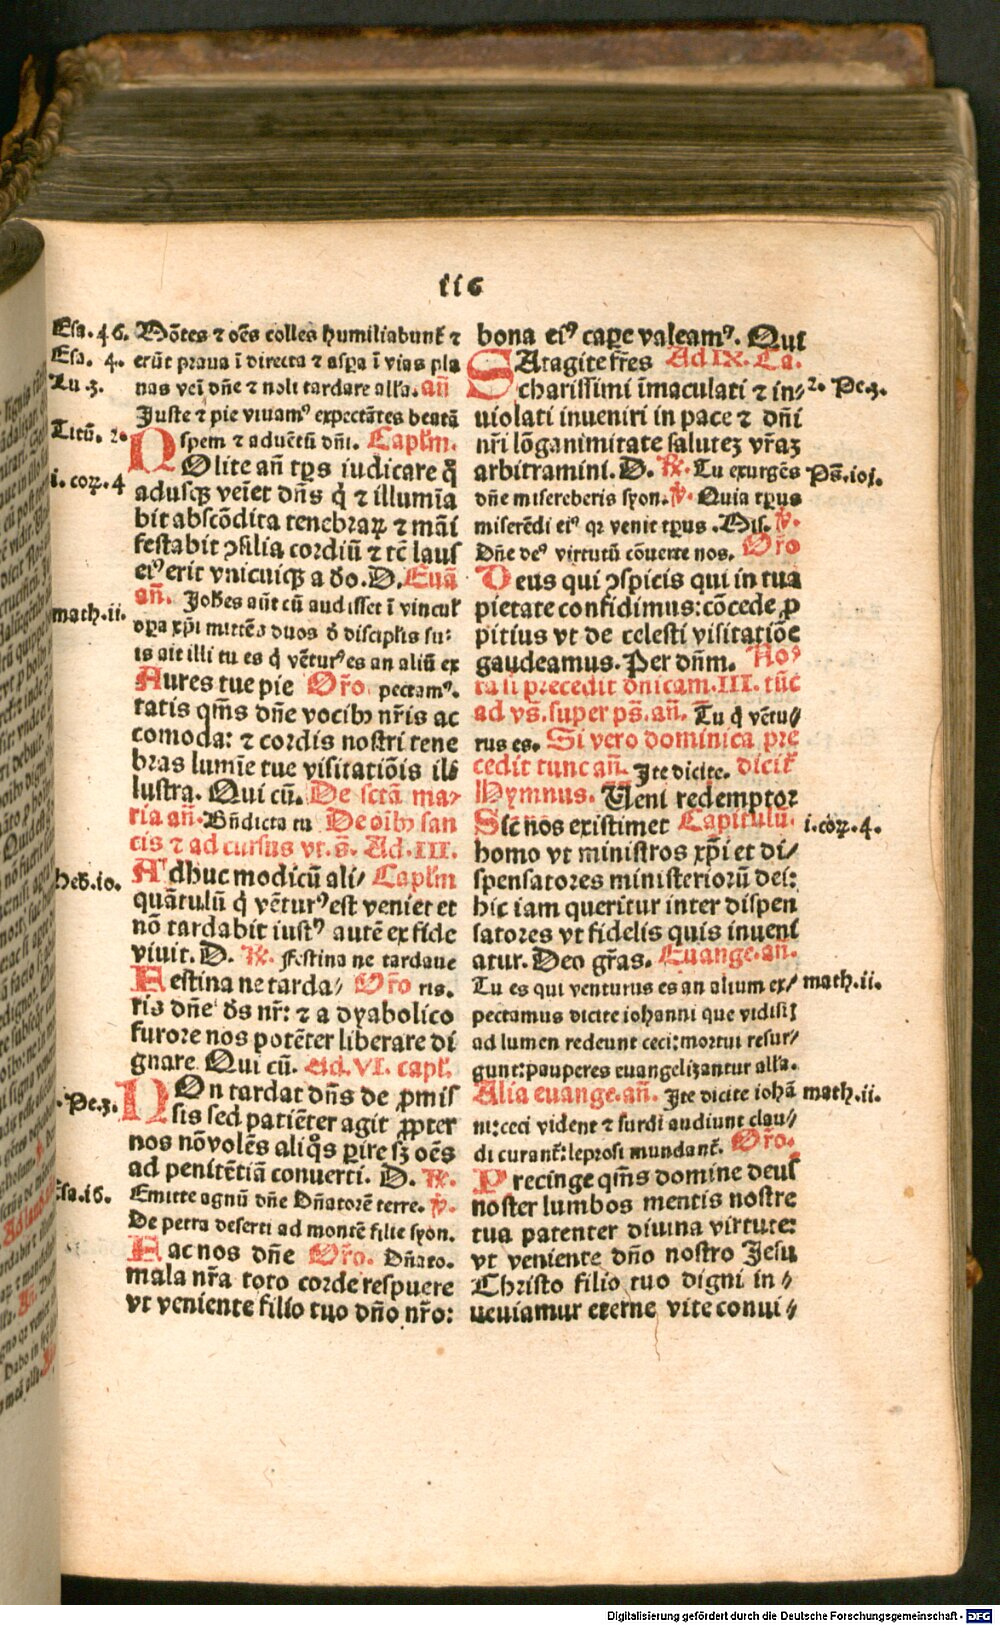 116
Esa. 46.
Esa. 4.
Lu. 3.
Titū. 2.
i. coꝝ. 4
math. ii.
heb. io.
Pe. 3.
Esa. i6.
Mōtes ⁊ oēs colles humiliabunt̄ ⁊
erūt praua ī directa ⁊ asꝑa ī vias pla
nas veī dn̄e ⁊ noli tardare alľa. an̄
Juste ⁊ pie viuamꝰ expectātes beatā
spem ⁊ aduētū dn̄i. Capľm.
NOlite an̄ tp̄s iudicare q̄
adusqꝫ veīet dn̄s q̇ ⁊ illumīa
bit abscōdita tenebraꝝ ⁊ māi
festabit ꝯsilia cordiū ⁊ tc̄ laus
eiꝰ erit vnicuiqꝫ a do. D. Euā
an̄. Joh̄es aūt cū audisset ī vincul'
oꝑa xp̄i mittēs duos ď discipl'is su-
is ait illi tu es q̇ vēturꝰ es an aliū ex
Aures tue pie Or̄o. pectamꝰ.
tatis qm̄s dn̄e vocibꝫ nr̄is ac
comoda: ⁊ cordis nostri tene
bras lumīe tue visitatiōis il-
lustra. Qui cū. De sctā ma-
ria an̄. Bn̄dicta tu De oībꝫ san
ctis ⁊ ad cursus vt. s̄. Ad. III.
Adhuc modicū ali/ Capľm
quātulū q̇ vēturꝰ est veniet et
nō tardabit iustꝰ autē ex fide
viuit. D. ℟. Festina ne tardaue
Festina ne tarda/ Or̄o ris.
ris dn̄e ds̄ nr̄: ⁊ a dyabolico
furore nos potēter liberare di
gnare. Qui cū. Ad. VI. capľ.
NOn tardat dn̄s de ꝓmis
sis sed patiēter agit ꝓpter
nos nō volēs aliq̄s ꝑire sꝫ oēs
ad penitētiā conuerti. D. ℟.
Emitte agnū dn̄e Dn̄atorē terre. ℣.
De petra deserti ad montē filie syon.
Fac nos dn̄e Or̄o. Dn̄ato.
mala nr̄a toto corde respuere
vt veniente filio tuo dn̄o nr̄o:
bona eiꝰ capere valeamꝰ. Qui
SAtagite fr̄es Ad IX. Ca.
charissimi īmaculati ⁊ in-
uiolati inueniri in pace ⁊ dn̄i
nr̄i lōganimitate saluteꝫ vr̄aꝫ
arbitramini. D. ℟. Tu exurgēs
dn̄e misereberis syon. ℣. Quia tp̄us
miserēdi eiꝰ qꝛ venit tp̄us. Mis. ℣.
Dn̄e deꝰ virtutū cōuerte nos. Or̄o
Deus qui ꝯspicis qui in tua
pietate confidimus: cōcede ꝓ
pitius vt de celesti visitatiōe
gaudeamus. Per dn̄m. Noꝰ
ta si precedit dn̄icam. III. tūc
ad vs̄. super ps̄. an̄. Tu q̇ vētu/
rus es. Si vero dominica pre
cedit tunc an̄. Ite dicite. dicit̄
Hymnus. Veni redemptor
Sic nos existimet Capitulū.
homo vt ministros xp̄i et di/
spensatores ministeriorū dei:
hic iam queritur inter dispen
satores vt fidelis quis inueni
atur. Deo gr̄as. Euange. an̄.
Tu es qui venturus es an alium ex/
pectamus dicite iohanni que vidisi
ad lumen redeunt ceci: mortui resur/
gunt: pauperes euangelizantur alľa.
Alia euange. an̄. Ite dicite iohā
ni: ceci vident ⁊ surdi audiunt clau/
di curant̄: leprosi mundant̄. Or̄o.
Precinge qm̄s domine deus
noster lumbos mentis nostre
tua patenter diuina virtute:
vt veniente dn̄o nostro Jesu
Christo filio tuo digni in/
ueniamur eterne vite conui/
2. Pe. 3.
Ps. ioi.
i. coꝝ. 4.
math. ii.
math. ii.
Digitalisierung gefördert durch die Deutsche Forschungsgemeinschaft - DFG